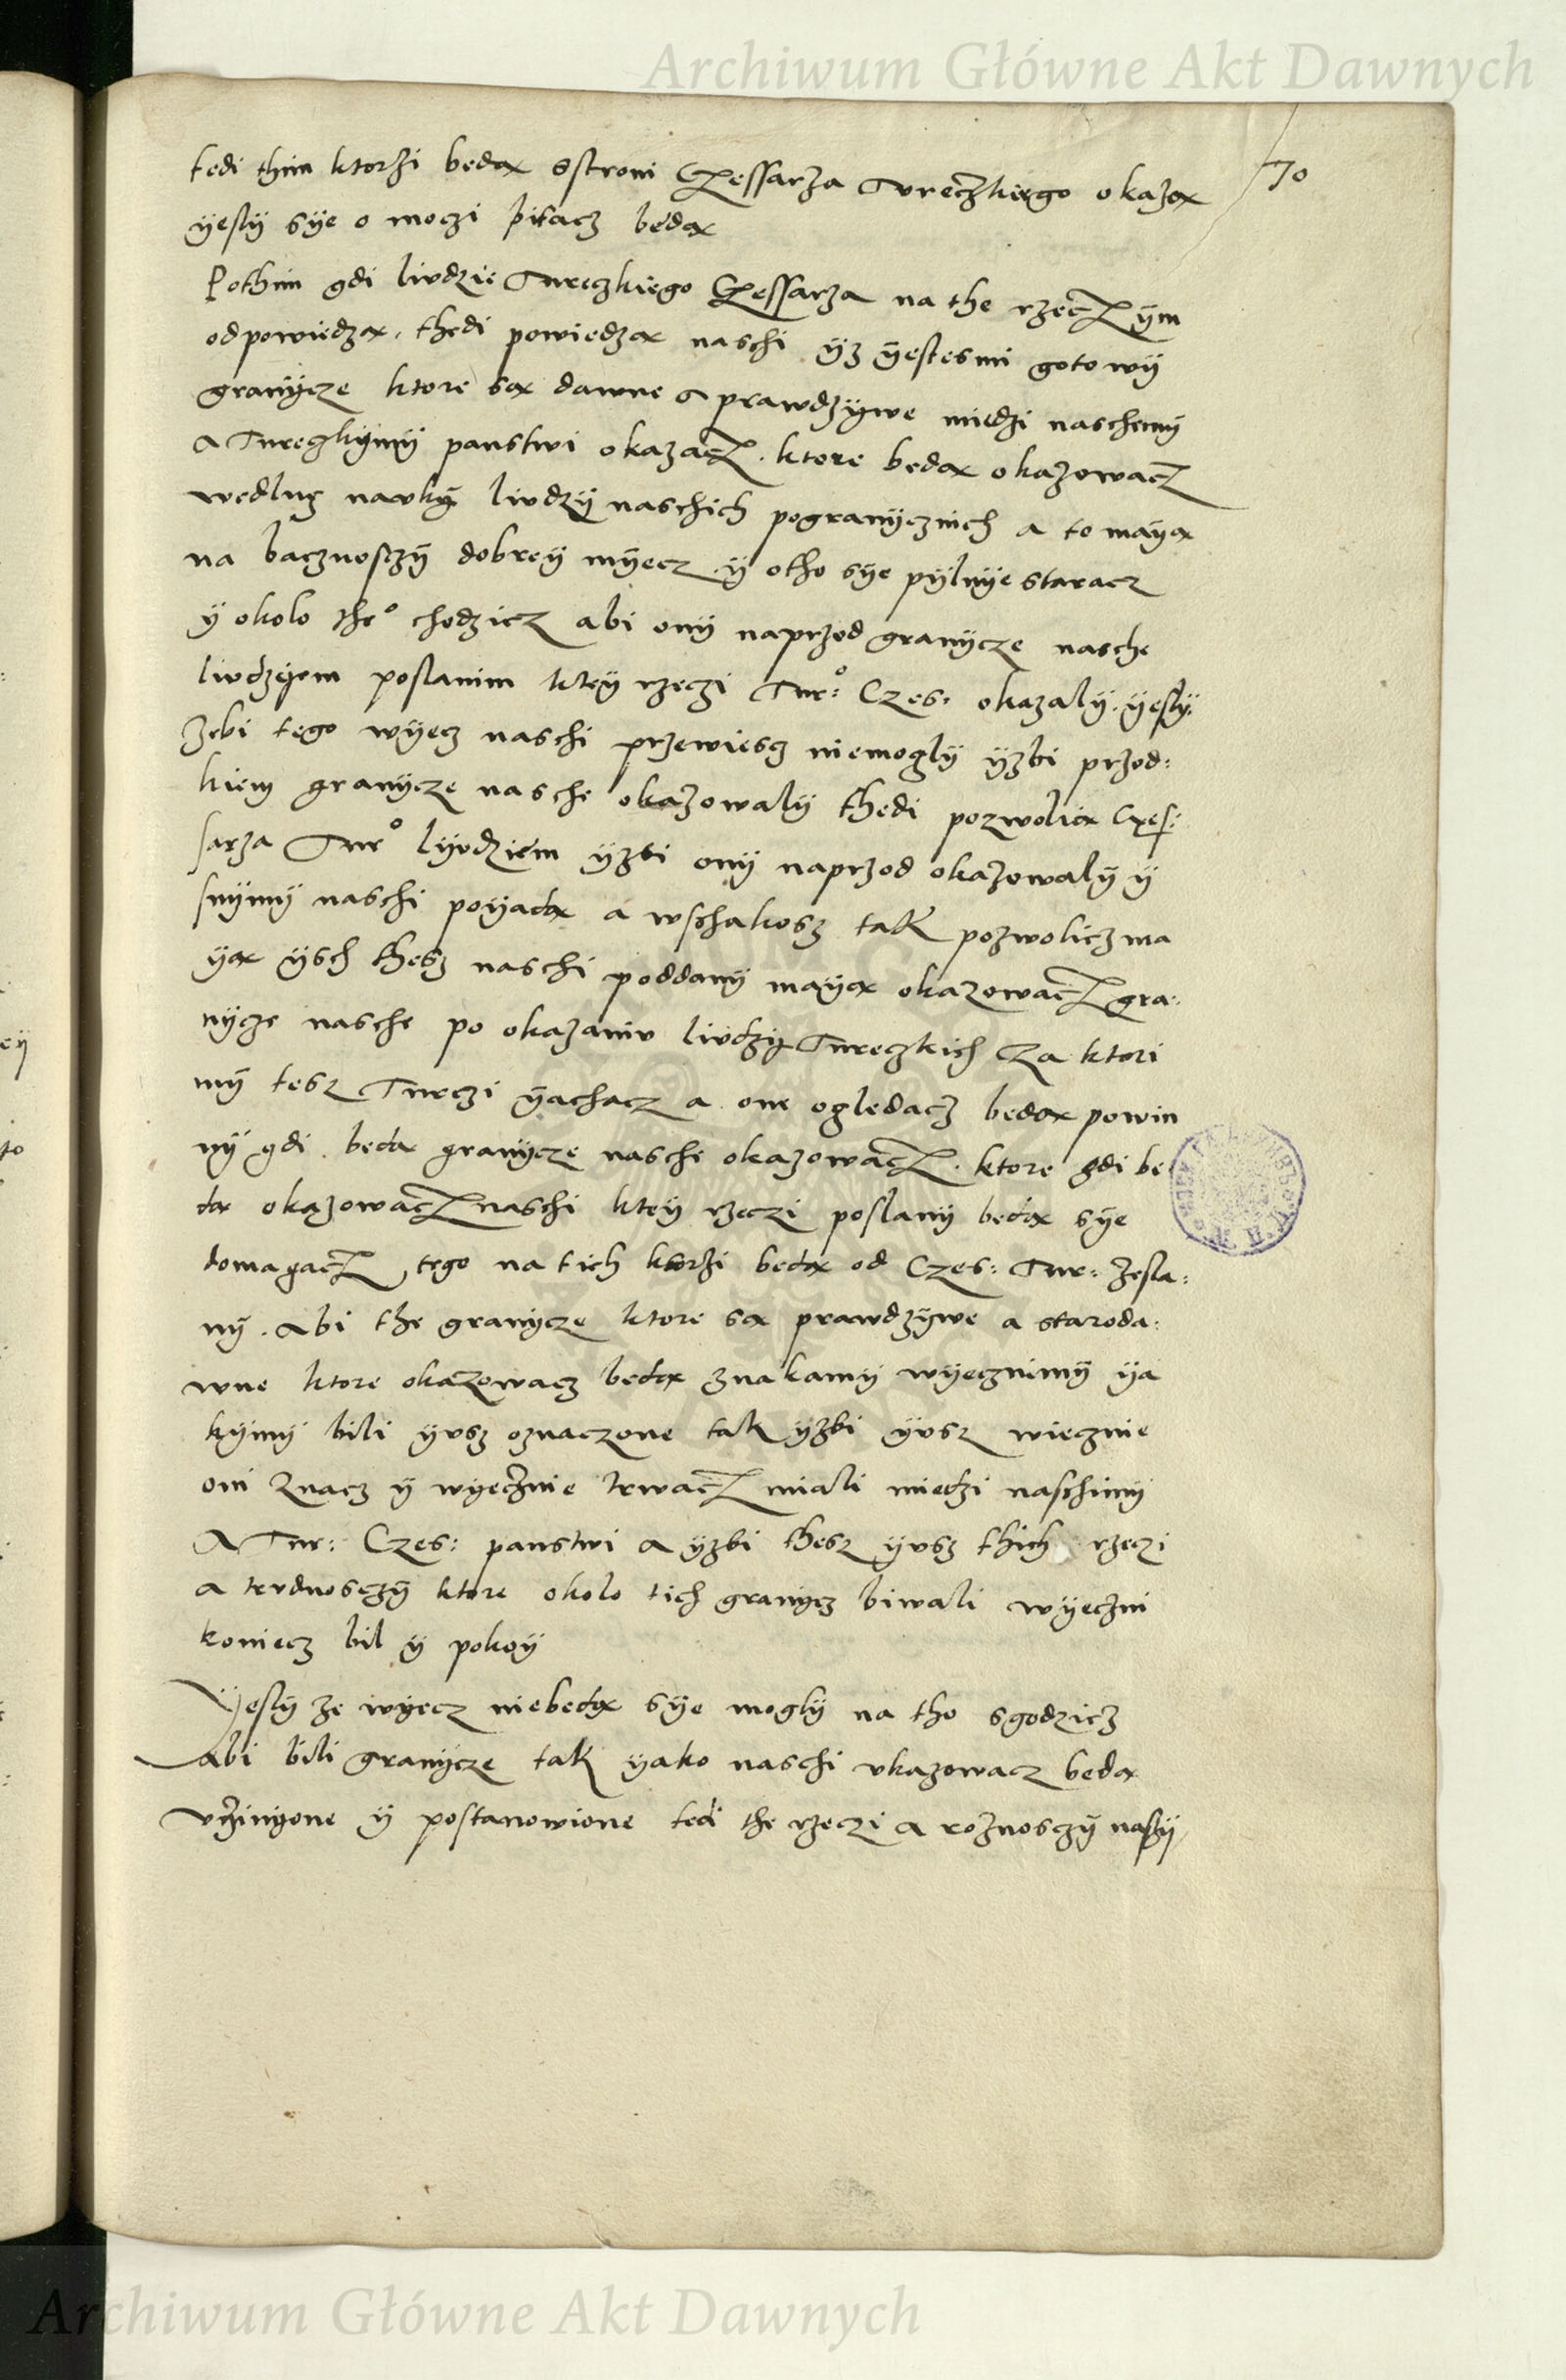 Archiwum Główne Akt Dawnych
70
tedi thim ktorzi bedax sstroni Czessarza Tureczkiego okazax
yesly sye o moczi pitacz bedax
Pothim gdi liudzie Tureczkiego Czessarza na the rzecz ym
odpowiedzax, thedi powiedzax naschi yz yestesmi gotowy
granycze ktore sax dawne a prawdzywe miedzi naschemy
a Tureczkymy panstwi okazacz. ktore bedax okazowacz
wedlug nauky liudzy naschich pogranycznich a to mayax
na bacznosczy dobrey myecz y otho sye pylnye staracz
y okolo the° chodzicz abi ony naprzod granycze nasche
liudzyom poslanim ktey rzeczi Tur° Czes: okazaly. yesly
zebi tego wyecz naschi przewiescz niemogly yzbi przod:
kiem granycze nasche okazowaly thedi pozwolax Czes:
sarza Tur° lyudziem yzbi ony naprzod okazowaly y
snymy naschi poyadax a wschakosz tak pozwolicz ma
yax ysch thesz naschi poddany mayax okazowacz gra:
nycze nasche po okazaniu liudzy Tureczkich za ktori
my tesz Turczi yachacz a one ogledacz bedax powin
ny gdi bedax granycze nasche okazowacz. ktore gdi be
dax okazowacz naschi ktey rzeczi poslany bedax sye
domagacz tego na tich ktorzi bedax od Czes: Tur: zesla:
ny. Abi the granycze ktore sax prawdzywe a staroda:
wne ktore okazowacz bedax znakamy wyecznimy ya
kymy bili yusz oznaczone tak yzbi yusz wiecznie
oni znacz y wyecznie trwacz miali miedzi naschimy
A Tur: Czes: panstwi a yzbi thesz yusz thich rzeczi
a trudnosczy ktore okolo tich granycz biwali wyeczni
koniecz bil y pokoy
Yesly ze wyecz niebedax sye mogly na tho sgodzicz
abi bili granycze tak yako naschi ukazowacz bedax
uczinyone y postanowione tedi the rzeczi a roznosczy naszy
Archiwum Główne Akt Dawnych